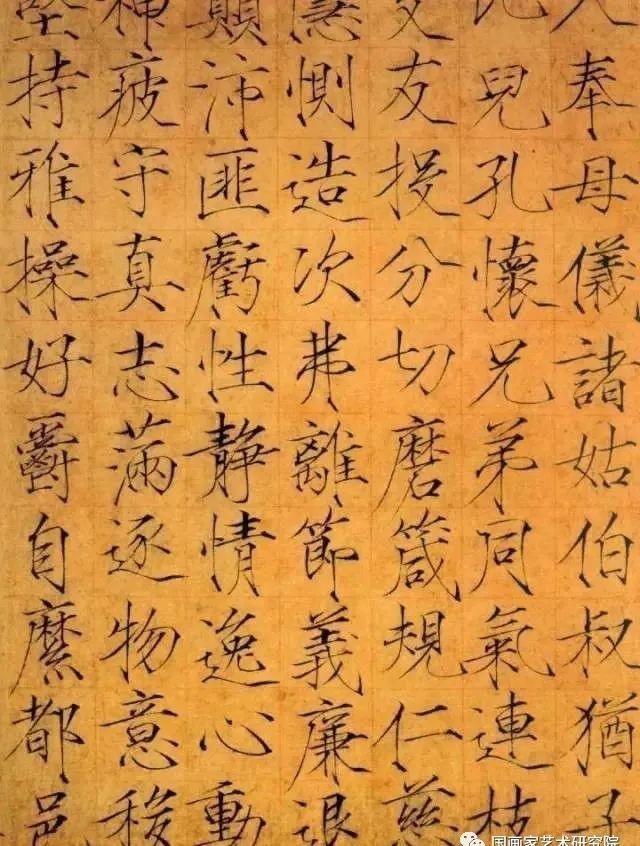 入奉母儀諸姑伯叔猶子
比兒孔懷兄弟同氣連枝
交友投分切磨箴規仁慈
隱惻造次弗離節義廉退
顛沛匪虧性靜情逸心動
神疲守真志滿逐物意移
堅持雅操好爵自縻都邑
国画家艺术研究院